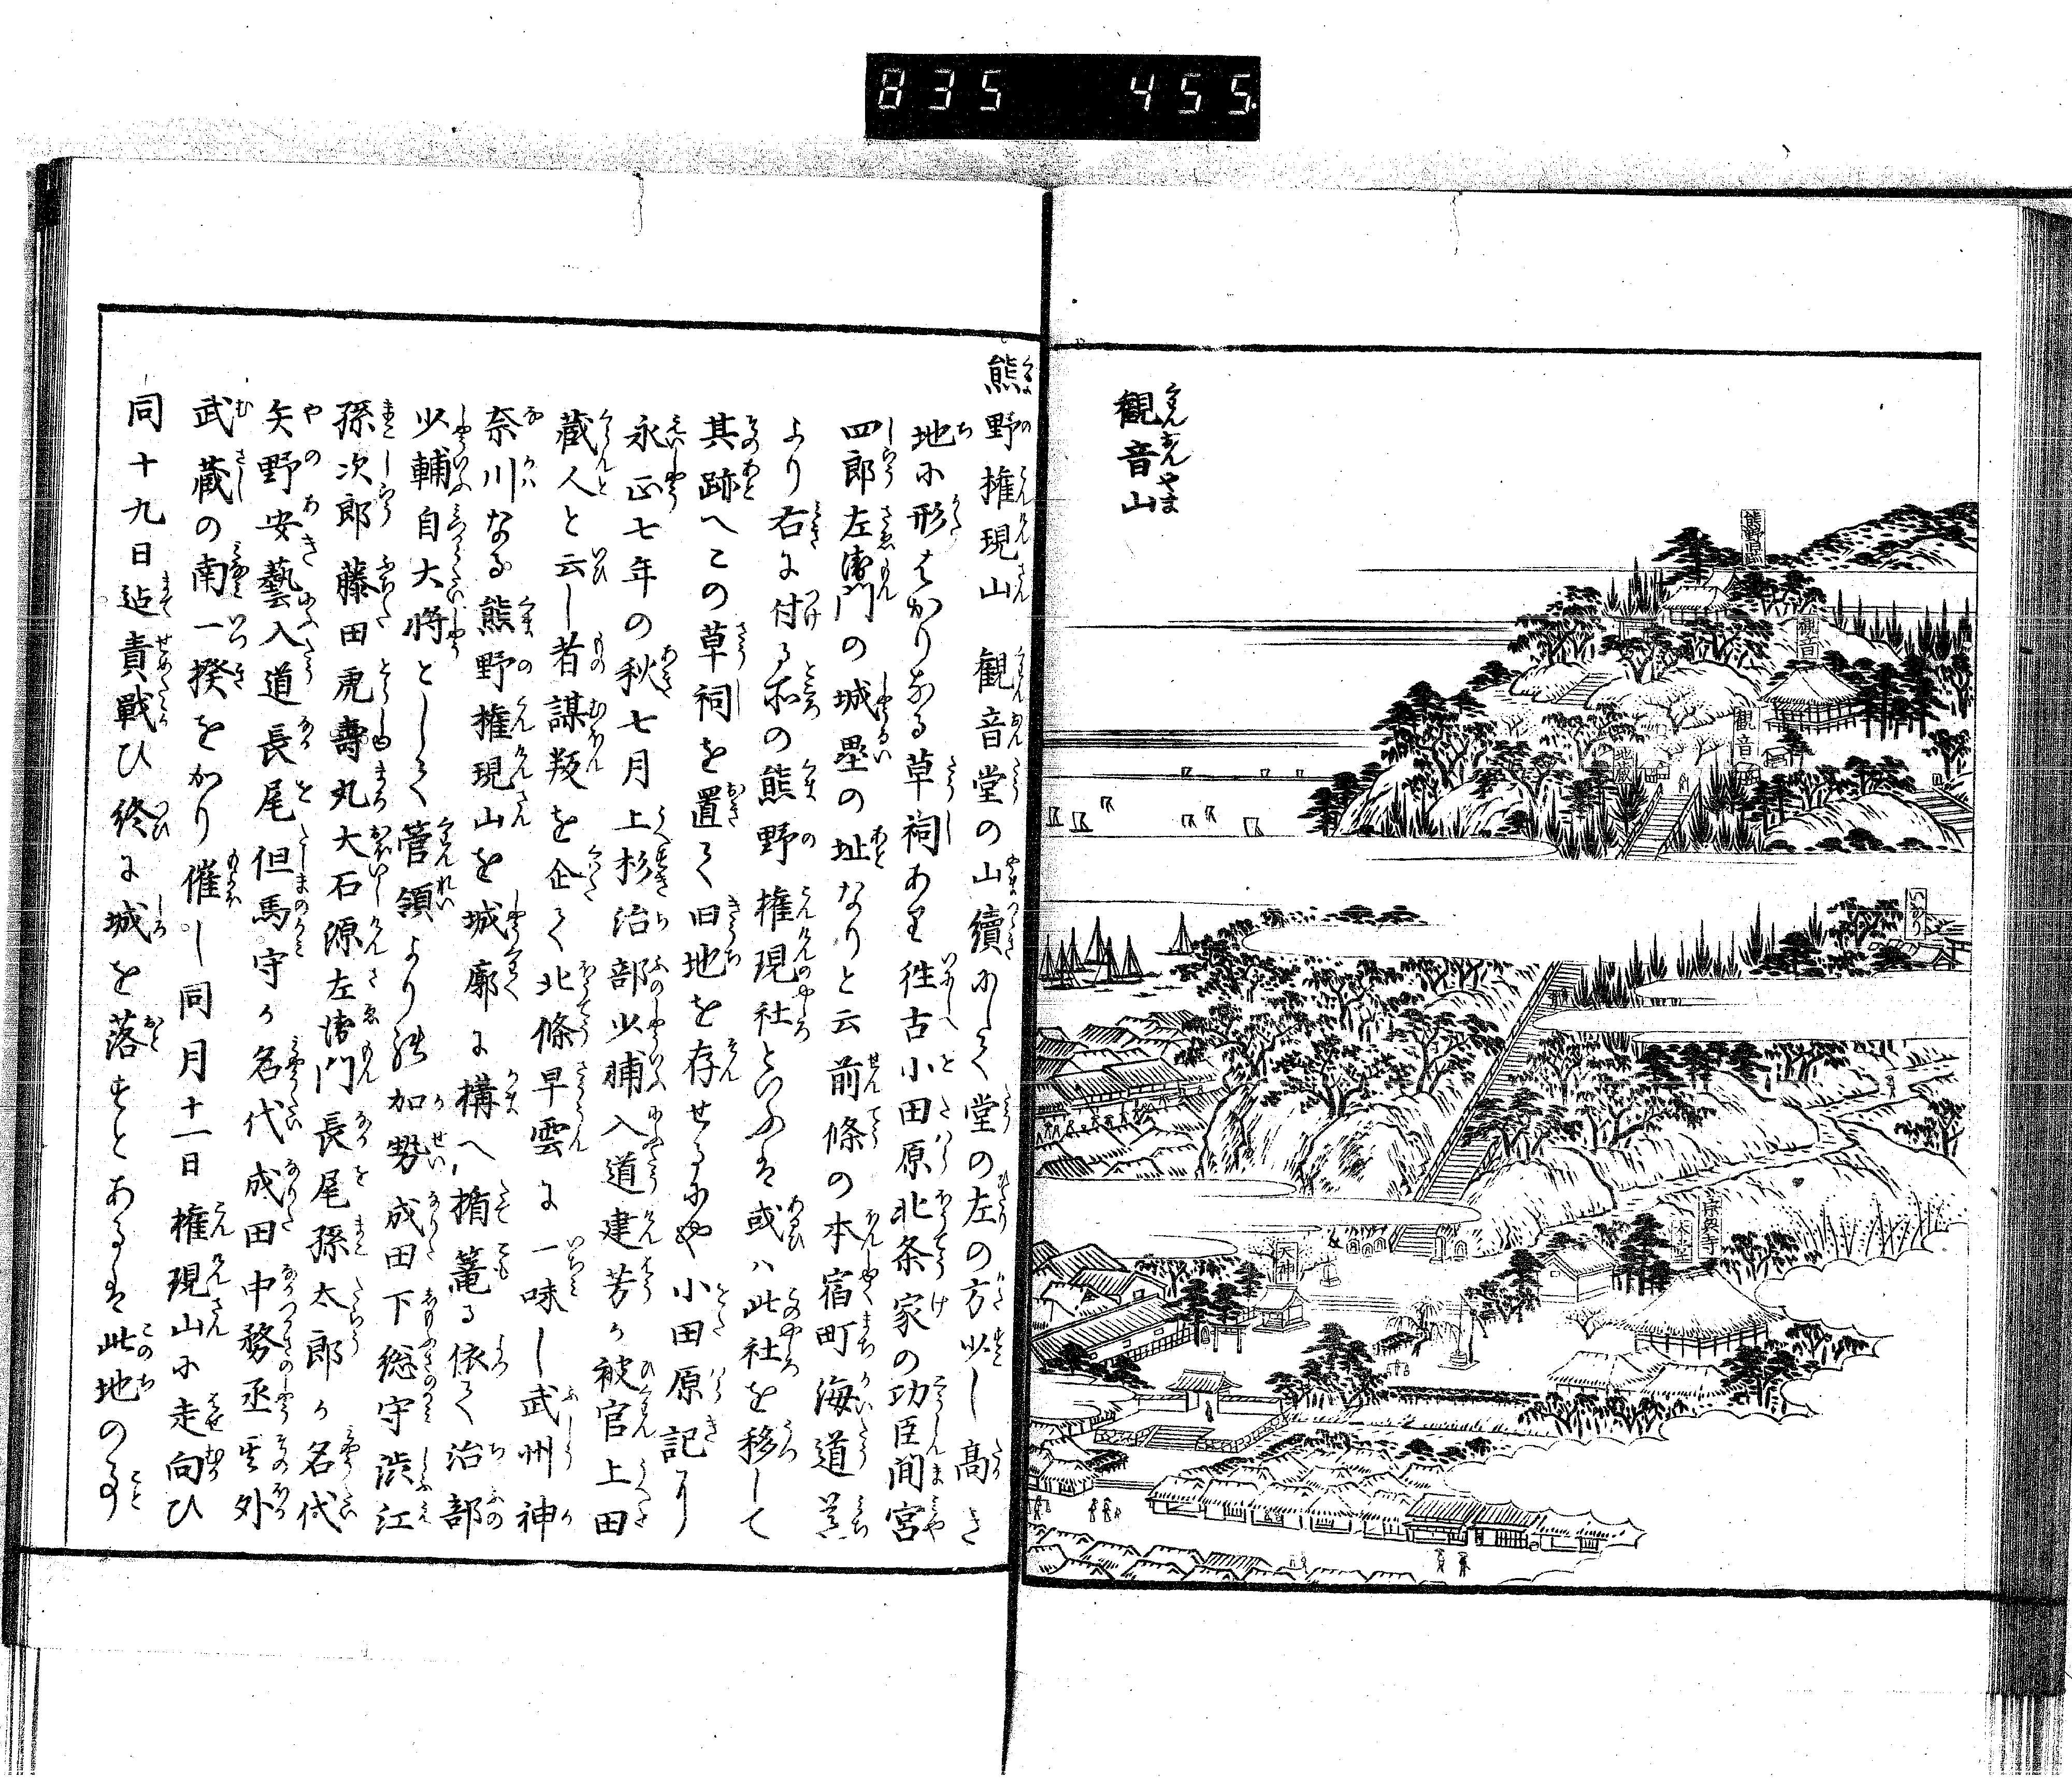 835 455
観音山
熊野社
観音
観音
地蔵
いなり
宗興寺
本堂
天神
熊野権現山 観音堂の山續にして堂の左の方少し高き
地に形はかりなる草祠あり往古小田原北条家の功臣間宮
四郎左衛門の城塁の址なりと云前條の本宿町海道
より右に付る所の熊野権現社といふは或ハ此社を移して
其跡へこの草祠を置て旧地を存せるにや小田原記に
永正七年の秋七月上杉治部少輔入道建芳か被官上田
蔵人と云し者謀叛を企て北條早雲に一味し武州神
奈川なる熊野権現山を城廓に構へ楯篭る依て治部
少輔自大将として管領より加勢成田下総守渋江
孫次郎藤田虎壽丸大石源左衛門長尾孫太郎か名代
矢野安藝入道長尾但馬守か名代成田中務丞其外
武蔵の南一揆をかり催し同月十一日権現山に走向ひ
同十九日迠責戦ひ終に城を落すとあるは此地の事